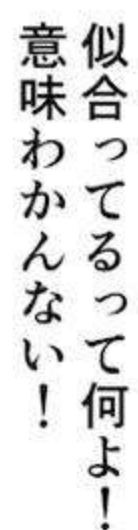 似合ってるって何よ！
意味わかんない！